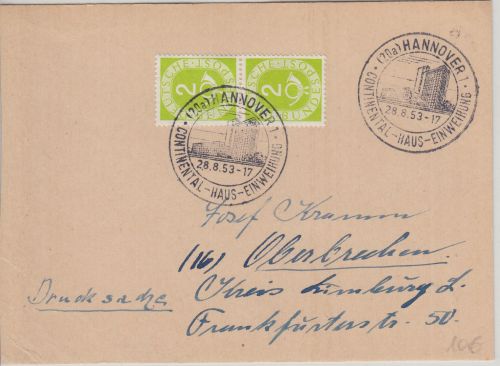 DEUTSCHE·BUNDESPOST
2
DEUTSCHE·BUNDESPOST
2
·(20a)HANNOVER 1·
28.8.53-17
CONTINENTAL-HAUS-EINWEIHUNG
·(20a)HANNOVER 1·
28.8.53-17
CONTINENTAL-HAUS-EINWEIHUNG
Josef Kramon
(16) Oberbrechen.
Drucksache
Kreis Limburg L.
Frankfurterstr. 50.
10€